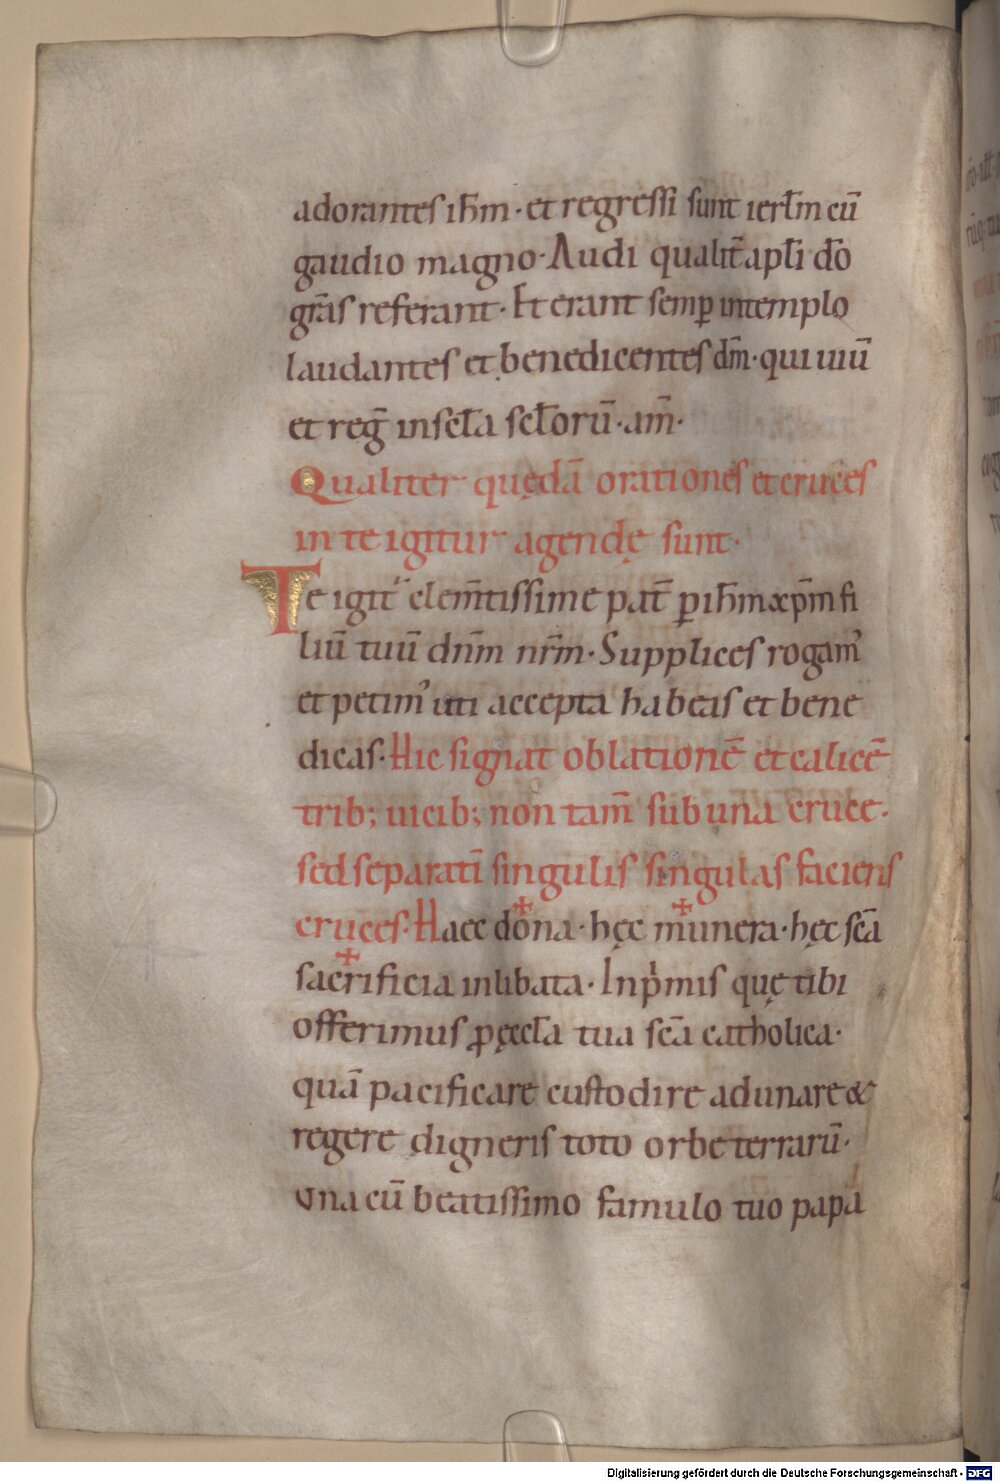 adorantes ihm̄ · et regressi sunt ierl̄m cū
gaudio magno · Audi qualit̄ apl̄i dō
gr̄as referant · Et erant semꝑ intemplo
laudantes et benedicentes dm̄ · qui uiū
et reḡ in scl̄a scl̄orū · am̄ ·
Qualiter quędā orationes et cruces
in te igitur agendę sunt ·
Te igit᷑ clem̄tissime pat̄ ꝑ ihm̄ xp̄m fi
liū tuū dn̄m nr̄m · Supplices rogam᾿
et petim᾿ uti accepta habeas et bene
dicas · Hic signat oblationē et calicē
trib; uicib; non tam̄ sub una cruce ·
sed separatī singulis singulas faciens
cruces · Haec do✠na · hęc m✠unera · hęc sc̄a
sac✠rificia inlibata · Inp̓mis quę tibi
offerimus ꝓ ęccl̄a tua sc̄a catholica ·
quā pacificare custodire adunare &
regere digneris toto orbe terrarū ·
una cū beatissimo famulo tuo papa
Digitalisierung gefördert durch die Deutsche Forschungsgemeinschaft - DFG